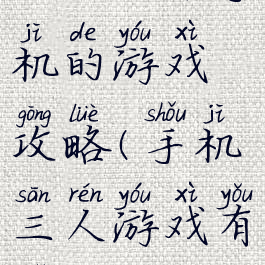 jī de yóu xì
机的游戏
gōng lüè shǒu jī
攻略(手机
sān rén yóu xì yǒu
三人游戏有